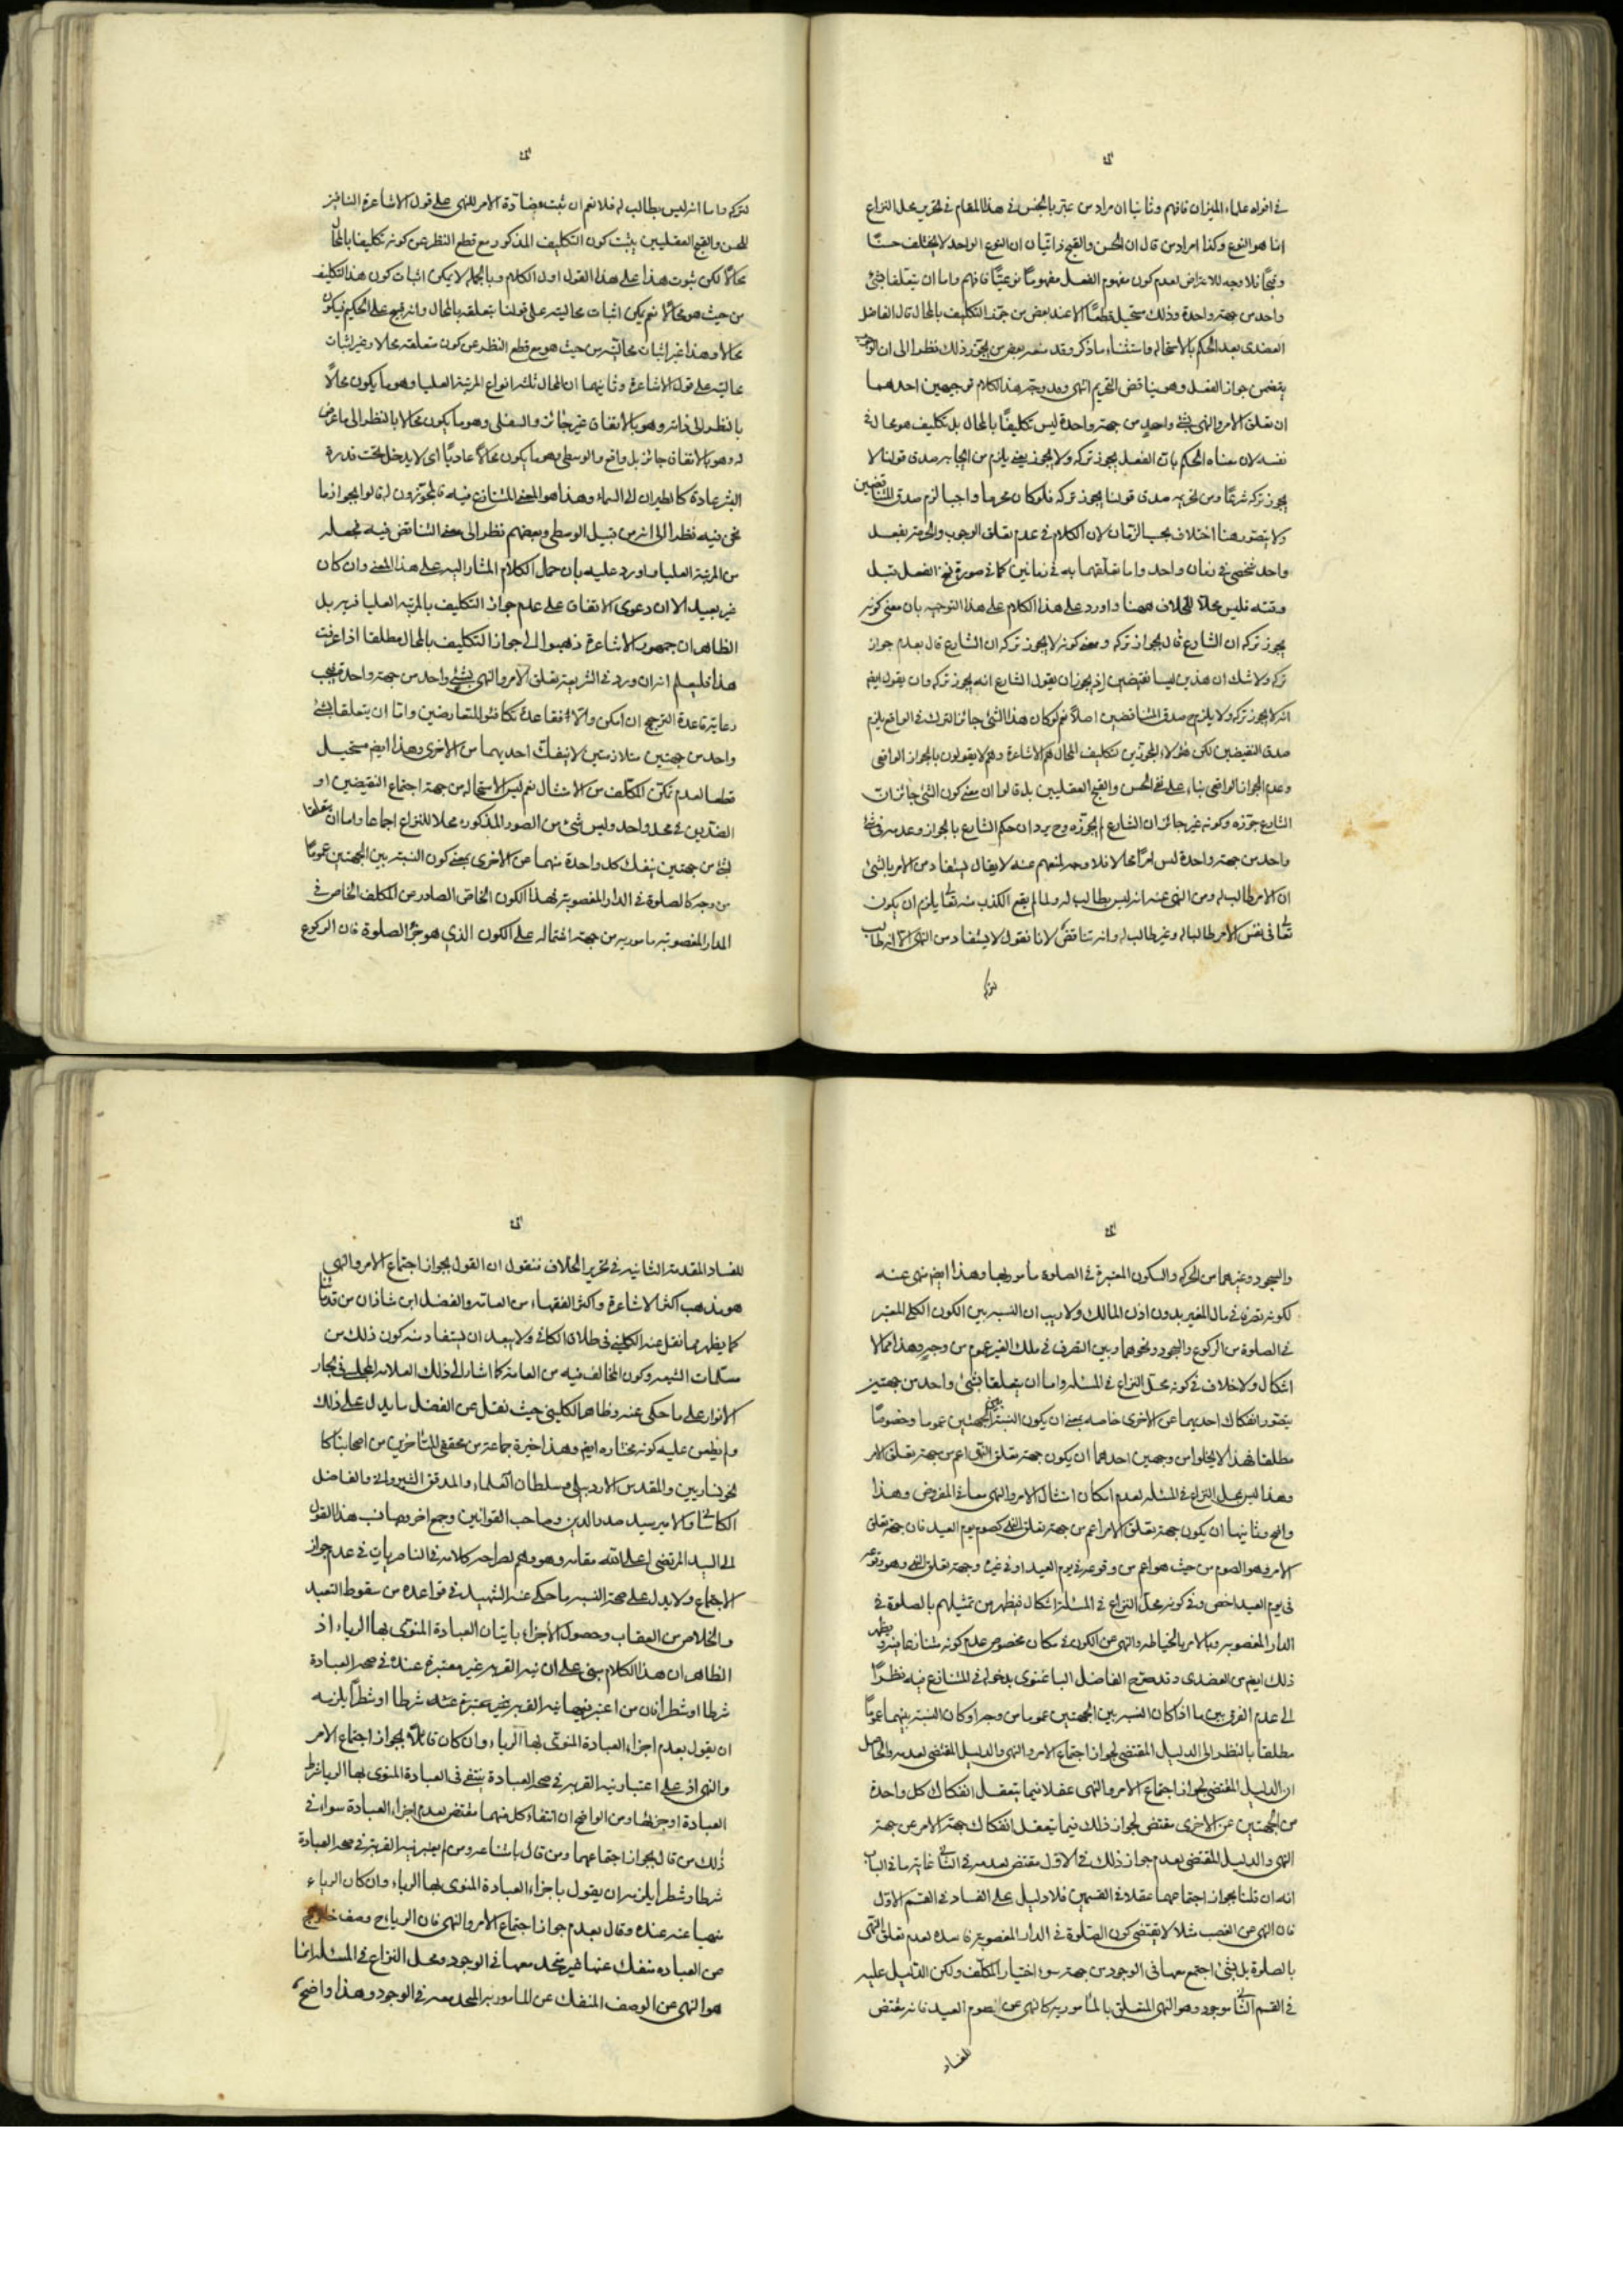 في افراد علماء الميزان فافهم وثانيا ان مراد من عبر بالجنس في هذا المقام في تحرير محل النزاع
انما هو النوع وكذا مراد من قال ان الحسن والقبح ذاتيان ان النوع الواحد لا يختلف حسنا
وقبحا فلا وجه للاعتراض لعدم كون مفهوم الفعل مفهوما نوعيا فافهم واما ان يتعلقا بشئ
واحد من جهة واحدة وذلك مستحيل قطعا الا عند بعض من جوز التكليف بالمحال قال الفاضل
العضدي بعد الحكم بالاستحالة واستثناء ما ذكر وقد منعه بعض من يجوز ذلك نظرا الى ان الوجوب
يتضمن جواز الفعل وهو يناقض التحريم انتهى وقد وجه هذا الكلام توجيهين احدهما
ان تعلق الامر والنهي بشئ واحد من جهة واحدة ليس تكليفا بالمحال بل تكليف هو محال في
نفسه لان معناه الحكم بان الفعل يجوز تركه ولا يجوز يعني يلزم من ايجابه صدق قولنا لا
يجوز تركه شرعا ومن تحريمه صدق قولنا يجوز تركه فلو كان محرما واجبا لزم صدق المتناقضين
ولا يتصور هنا اختلاف بحسب الزمان لان الكلام في عدم تعلق الوجوب والحرمة بفعل
واحد شخصي في زمان واحد واما تعلقهما به في زمانين كما في صورة نسخ الفعل قبل
وقته فليس محلا للخلاف ههنا واورد على هذا الكلام على هذا التوجيه بان معنى كونه
يجوز تركه ان الشارع قال بجواز تركه ومعنى كونه لا يجوز تركه ان الشارع قال بعدم جواز
تركه ولا شك ان هذين ليسا نقيضين اذ يجوز ان يقول الشارع انه يجوز تركه وان يقول ايضا
انه لا يجوز تركه ولا يلزم ح صدق المتناقضين اصلا نعم لو كان هذا الشئ جائز الترك في الواقع يلزم
صدق النقيضين لكن هؤلاء المجوزين لتكليف المحال هم الاشاعرة وهم لا يقولون بالجواز الواقعي
وعدم الجواز الواقعي بناء على نفي الحسن والقبح العقليين بل قالوا ان معنى كون الشئ جائزا ان
الشارع جوزه وكونه غير جائز ان الشارع لم يجوزه وح يرد ان حكم الشارع بالجواز وعدمه في شئ
واحد من جهة واحدة ليس امرا محالا فلا وجه لمنعهم عنه لا يقال يستفاد من الامر بالشئ
ان الامر طالب له ومن النهي عنه انه ليس بطالب له ولما لم يقع الكذب منه تعالى يلزم ان يكون
تعالى في نفس الامر طالبا له وغير طالب له وانه تناقض لانا نقول لا يستفاد من النهي الا انه طالب
لتركه
لتركه واما انه ليس بطالب له فلا نعم ان ثبت مضادة الامر للنهي على قول الاشاعرة النافين
للحسن والقبح العقليين يثبت كون التكليف المذكور مع قطع النظر عن كونه تكليفا بالمحال
محالا لكن ثبوت هذا على هذا القول اول الكلام وبالجملة لا يمكن اثبات كون هذا التكليف
من حيث هو محالا نعم يمكن اثبات محاليته على قولنا بتعلقه بالمحال وانه قبيح على الحكيم فيكون
محالا وهذا غير اثبات محاليته من حيث هو مع قطع النظر عن كون متعلقه محالا وغير اثبات
محاليته على قول الاشاعرة وثانيهما ان المحال ثلثة انواع المرتبة العليا وهو ما يكون محالا
بالنظر الى ذاته وهو بالاتفاق غير جائز والسفلى وهو ما يكون محالا بالنظر الى ما عرض
له وهو بالاتفاق جائز بل واقع والوسطى وهو ما يكون محالا عاديا اي لا يدخل تحت قدرة
البشر عادة كالطيران الى السماء وهذا هو المعنى المتنازع فيه فالمجوزون له قالوا بجواز ما
نحن فيه نظرا الى انه من قبيل الوسطى وبعضهم نظر الى معنى التناقض فيه فجعله
من المرتبة العليا واورد عليه بان حمل الكلام المشار اليه على هذا المعنى وان كان
غير بعيد الا ان دعوى الاتفاق على عدم جواز التكليف بالمرتبة العليا فرية بل
الظاهر ان جمهور الاشاعرة ذهبوا الى جواز التكليف بالمحال مطلقا اذا عرفت
هذا فليعلم انه ان ورد في الشريعة تعلق الامر والنهي بشئ واحد من جهة واحدة فيجب
رعاية قاعدة الترجيح ان امكن والا فقاعدة تكافئ المتعارضين واما ان يتعلقا بشئ
واحد من جهتين متلازمتين لا ينفك احديهما من الاخرى وهذا ايضا مستحيل
قطعا لعدم تمكن المكلف من الامتثال نعم ليس الاستحالة من جهة اجتماع النقيضين او
الضدين في محل واحد وليس شئ من الصور المذكورة محلا للنزاع اجماعا واما ان يتعلقا
بشئ من جهتين ينفك كل واحدة منهما عن الاخرى بمعنى كون النسبة بين الجهتين عموما
من وجه كالصلوة في الدار المغصوبة فهذا الكون الخاص الصادر من المكلف الخاص في
الدار المغصوبة مامور به من جهة اشتماله على الكون الذي هو جزء الصلوة فان الركوع
والسجود وغيرهما من الحركة والسكون المعتبرة في الصلوة مأمور بها وهذا ايضا منهي عنه
لكونه تصرفا في مال الغير بدون اذن المالك ولا ريب ان النسبة بين الكون الكلي المعتبر
في الصلوة من الركوع والسجود ونحوهما وبين التصرف في ملك الغير عموم من وجه وهذا مما لا
اشكال ولا خلاف في كونه محل النزاع في المسئلة واما ان يتعلقا بشئ واحد من جهتين
يتصور انفكاك احديهما عن الاخرى خاصة بمعنى ان يكون النسبة بين الجهتين عموما وخصوصا
مطلقا فهذا لا يخلو من وجهين احدهما ان يكون جهة تعلق النهي اعم من جهة تعلق الامر
وهذا ليس محل النزاع في المسئلة لعدم امكان امتثال الامر والنهي معا في المفروض وهذا
واضح وثانيهما ان يكون جهة تعلق الامر اعم من جهة تعلق النهي كصوم يوم العيد فان جهة تعلق
الامر وهو الصوم من حيث هو اعم من وقوعه في يوم العيد او في غيره وجهة تعلق النهي وهو وقوعه
في يوم العيد اخص وفي كونه محل النزاع في المسئلة اشكال فيظهر من تمثيلهم بالصلوة في
الدار المغصوبة وبالامر بالخياطة والنهي عن الكون في مكان مخصوص عدم كونه متنازعا فيه ويظهر
ذلك ايضا من العضدي وقد صرح الفاضل الباغنوي بدخوله في المتنازع فيه نظرا
الى عدم الفرق بين ما اذا كان النسبة بين الجهتين عموما من وجه او كان النسبة بينهما عموما
مطلقا بالنظر الى الدليل المقتضي لجواز اجتماع الامر والنهي والدليل المقتضي لعدمه والحاصل
ان الدليل المقتضي لجواز اجتماع الامر والنهي عقلا فيما يتعقل انفكاك كل واحدة
من الجهتين عن الاخرى مقتض لجواز ذلك فيما يتعقل انفكاك جهة الامر عن جهة
النهي والدليل المقتضي بعدم جواز ذلك في الاول مقتض لعدمه في الثاني غاية ما في الباب
انه ان قلنا بجواز اجتماعهما عقلا في القسمين فلا دليل على الفساد في القسم الاول
فان النهي عن الغصب مثلا لا يقتضي كون الصلوة في الدار المغصوبة فاسدة لعدم تعلق النهي
بالصلوة بل بشئ اجتمع معها في الوجود من جهة سوء اختيار المكلف ولكن الدليل عليه
في القسم الثاني موجود وهو النهي المتعلق بالمأمور به كالنهي عن الصوم العيد فانه مقتض
للفساد
للفساد المقدمة الثانية في تحرير الخلاف فنقول ان القول بجواز اجتماع الامر والنهي
هو مذهب اكثر الاشاعرة واكثر الفقهاء من العامة والفضل ابن شاذان من قدمائنا
كما يظهر مما نقل عنه الكليني في طلاق الكافي ولا يبعد ان يستفاد منه كون ذلك من
مسلمات الشيعة وكون المخالف فيه من العامة كما اشار الى ذلك العلامة المجلسي في بحار
الانوار على ما حكى عنه وظاهر الكليني حيث نقل عن الفضل ما يدل على ذلك
ولم يطعن عليه كونه مختاره ايضا وهذا خيرة جماعة من محققي المتأخرين من اصحابنا كا
لخونساريين والمقدس الاردبيلي وسلطان العلماء والمدقق الشيرواني والفاضل
الكاشاني والامير سيد صدر الدين وصاحب القوانين وجمع اخر وصانب هذا القول
الى السيد المرتضى اعلى الله مقامه وهو وهم لصراحة كلامه في الناصريات في عدم جواز
الاجتماع ولا يدل على صحة النسبة ما حكى عنه الشهيد في قواعده من سقوط التعبد
والخلاص من العقاب وحصول الاجزاء باتيان العبادة المنوي بها الرياء اذ
الظاهر ان هذا الكلام مبني على ان نية القربة غير معتبرة عنده في صحة العبادة
شرطا او شطرا فان من اعتبر فيها نية القربة شرطا او شطرا يلزمه
ان يقول بعدم اجزاء العبادة المنوي بها الرياء وان كان قائلا بجواز اجتماع الامر
والنهي اذ على اعتبار نية القربة في صحة العبادة ينتفي في العبادة المنوي بها الرياء شرط
العبادة او جزئها ومن الواضح ان انتفاء كل منهما مقتض لعدم اجزاء العبادة سواء في
ذلك من قال بجواز اجتماعهما ومن قال بامتناعه ومن لم يعتبر نية القربة في صحة العبادة
شرطا وشطرا يلزمه ان يقول باجزاء العبادة المنوي بها الرياء وان كان الرياء
منهيا عنه عنده وقال بعدم جواز اجتماع الامر والنهي فان الرياء ح وصف خارج
عن العبادة منفك عنها غير متحد معها في الوجود ومحل النزاع في المسئلة انما
هو النهي عن الوصف المنفك عن المامور به المتحد معه في الوجود وهذا واضح